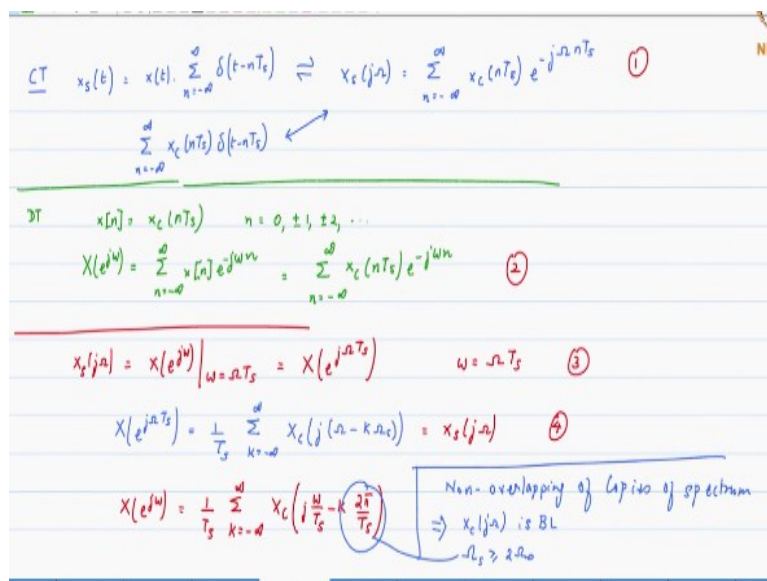 CT x_s(t) = x(t). ∑_{n=-∞}^{∞} δ(t-nT_s) ⇌ X_s(jΩ) = ∑_{n=-∞}^{∞} x_c(nT_s) e^{-jΩnT_s} ①
∑_{n=-∞}^{∞} x_c(nT_s) δ(t-nT_s)
DT x[n] = x_c(nT_s) n = 0, ±1, ±2, ...
X(e^{jω}) = ∑_{n=-∞}^{∞} x[n] e^{-jωn} = ∑_{n=-∞}^{∞} x_c(nT_s) e^{-jωn} ②
X_s(jΩ) = X(e^{jω})|_{ω=ΩT_s} = X(e^{jΩT_s}) ω = ΩT_s ③
X(e^{jΩT_s}) = 1/T_s ∑_{k=-∞}^{∞} X_c(j(Ω-kΩ_s)) = X_s(jΩ) ④
X(e^{jω}) = 1/T_s ∑_{k=-∞}^{∞} X_c(j ω/T_s - k 2π/T_s)
Non-overlapping of copies of spectrum
⇒ X_c(jΩ) is BL
Ω_s ≥ 2Ω_0